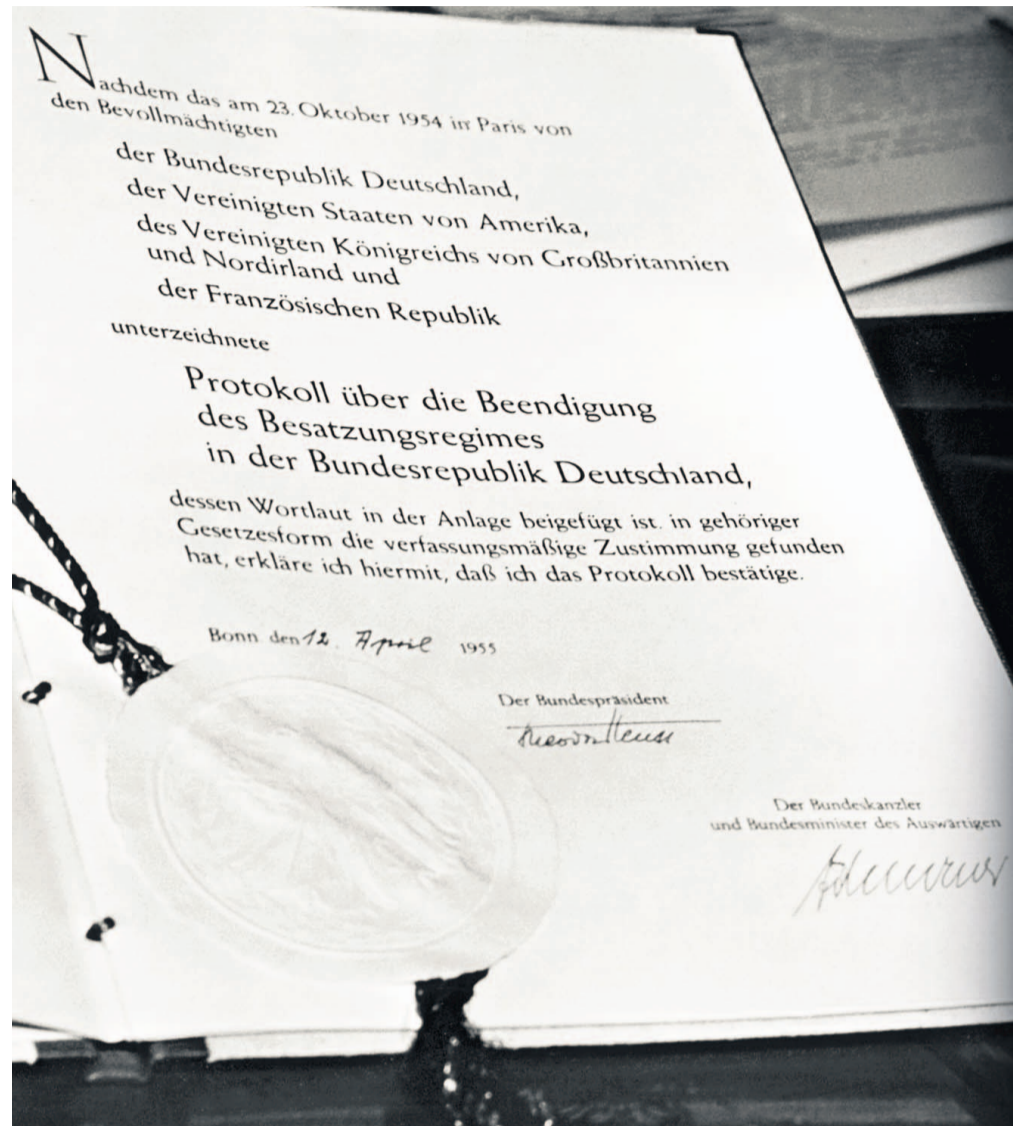 Nachdem das am 23. Oktober 1954 in Paris von
den Bevollmächtigten
der Bundesrepublik Deutschland,
der Vereinigten Staaten von Amerika,
des Vereinigten Königreichs von Großbritannien
und Nordirland und
der Französischen Republik
unterzeichnete
Protokoll über die Beendigung
des Besatzungsregimes
in der Bundesrepublik Deutschland,
dessen Wortlaut in der Anlage beigefügt ist, in gehöriger
Gesetzesform die verfassungsmäßige Zustimmung gefunden
hat, erkläre ich hiermit, daß ich das Protokoll bestätige.
Bonn den 12. April 1955
Der Bundespräsident
Theodor Heuss
Der Bundeskanzler
und Bundesminister des Auswärtigen
Adenauer